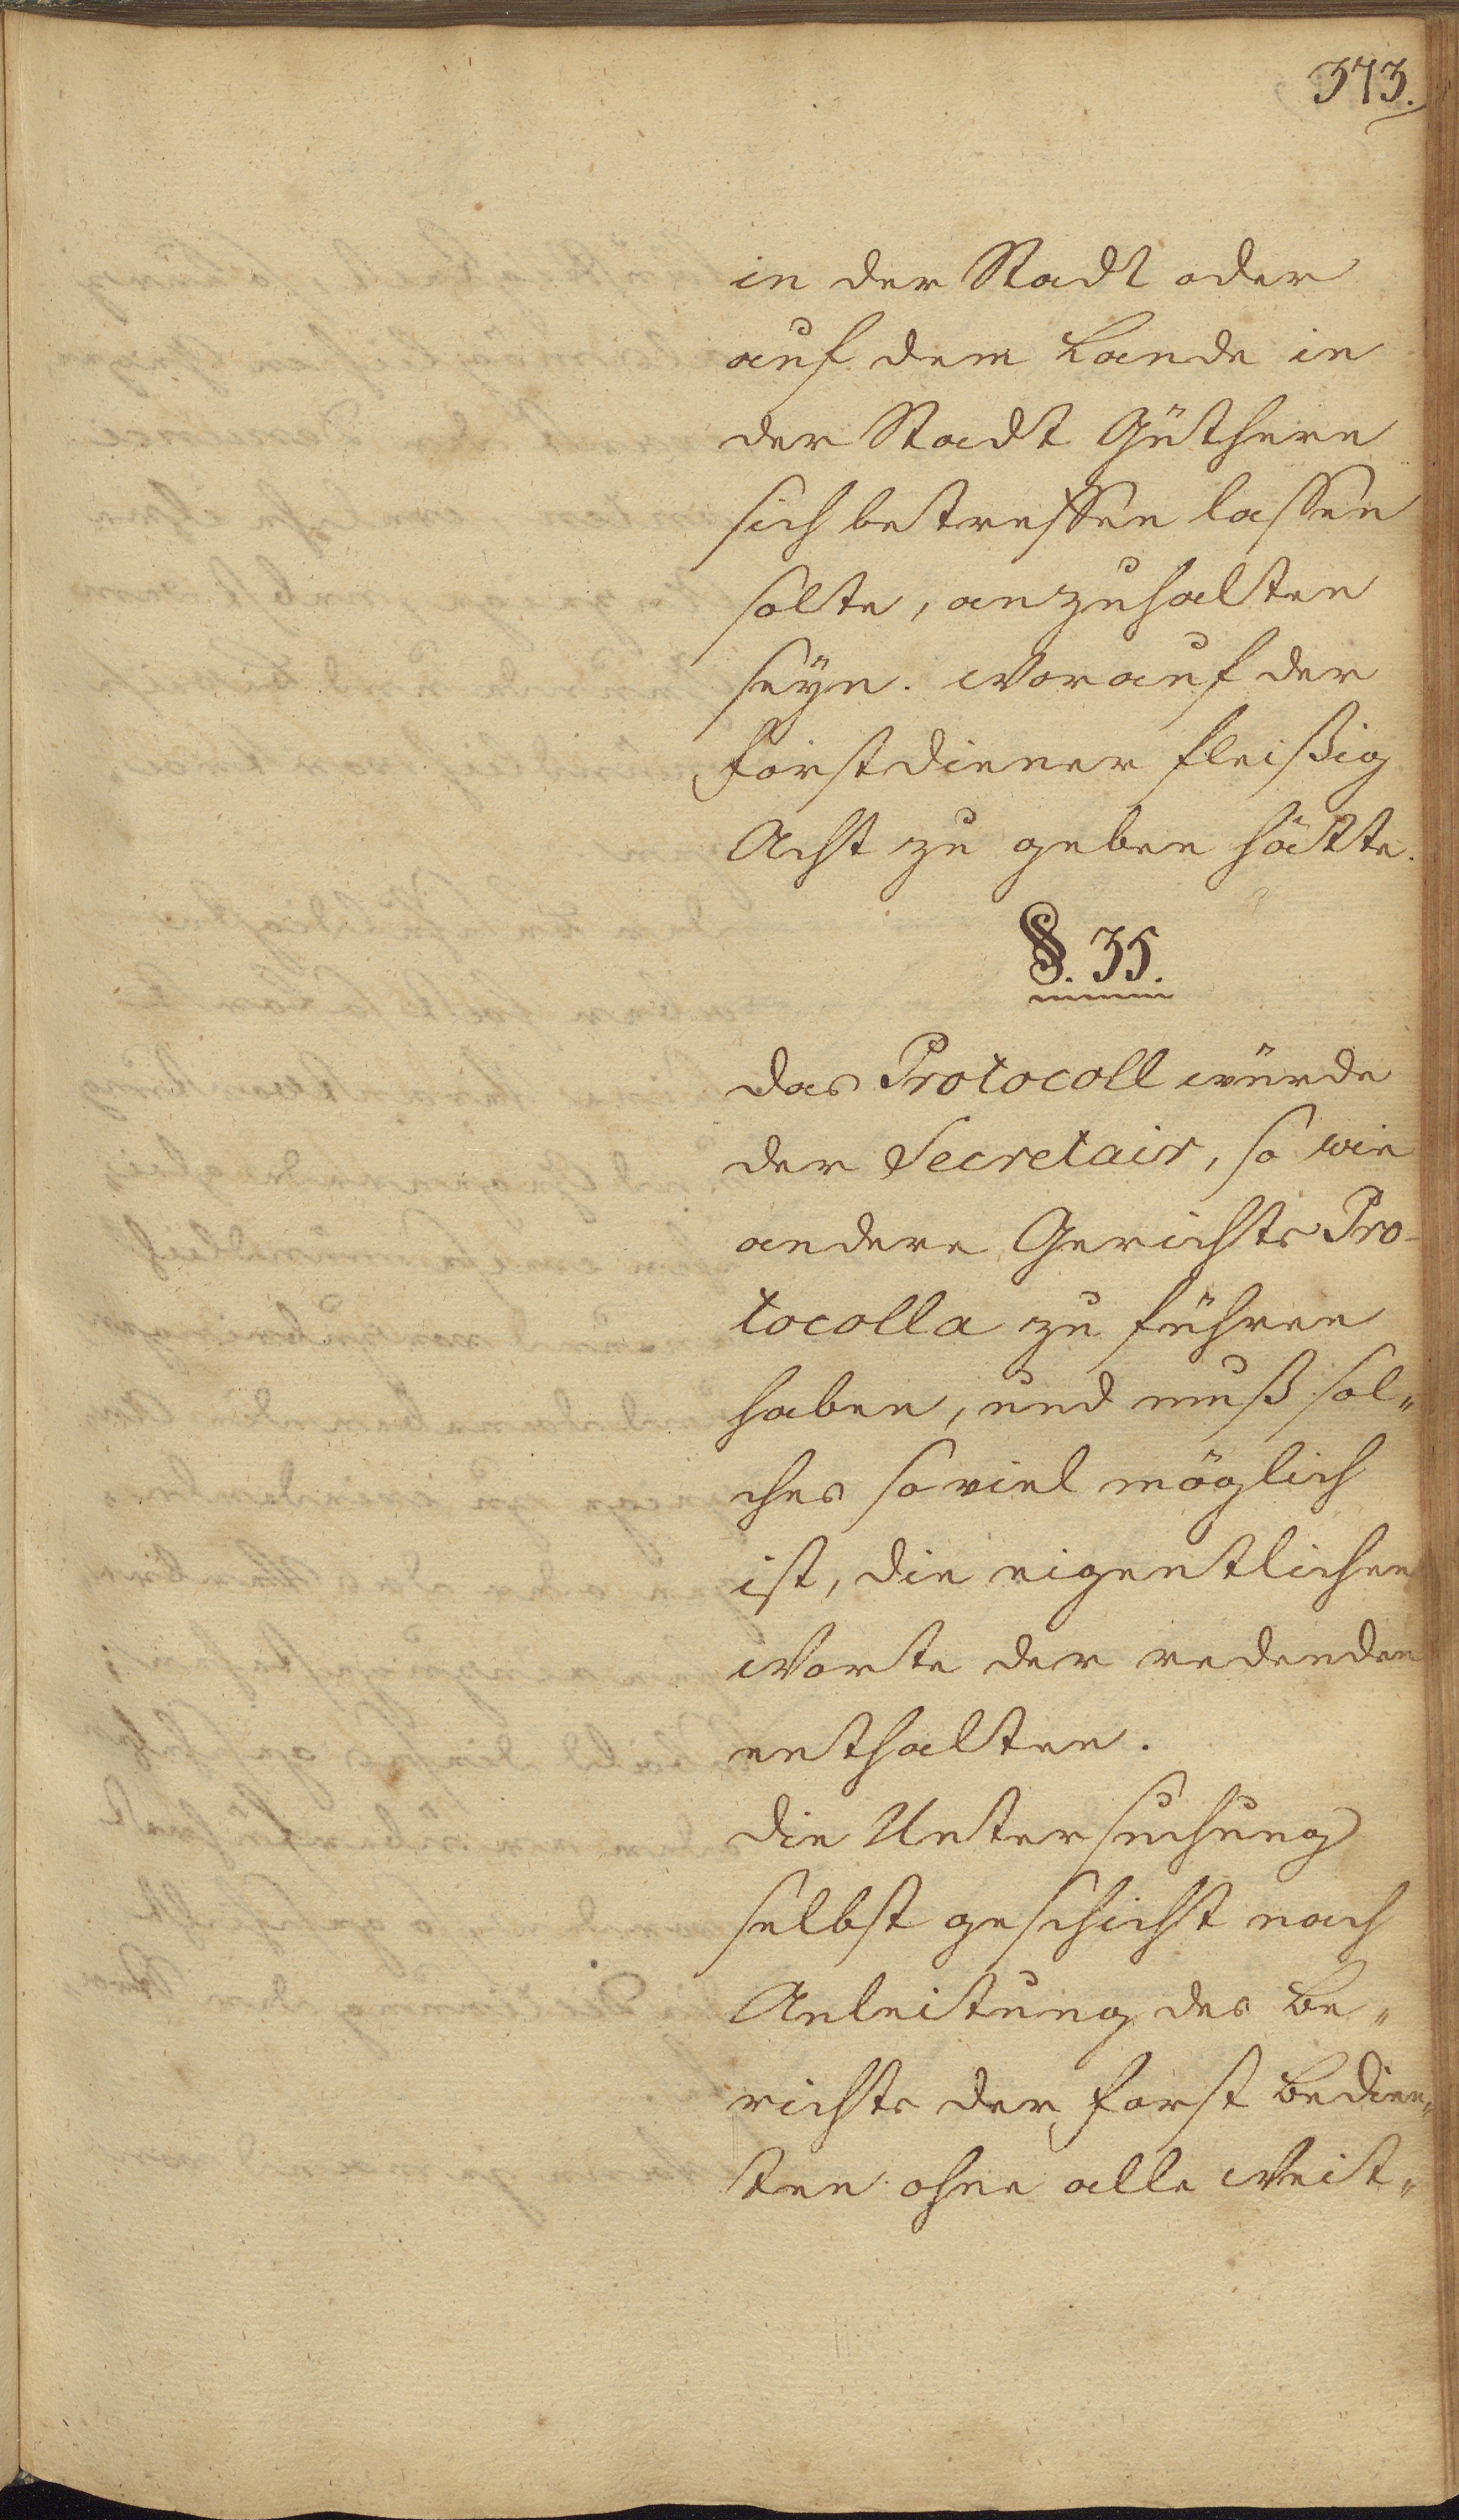 373.
in der Stadt oder
auf dem Lande in
der Stadt Güthern
sich betreffen lassen
solte, anzuhalten
seyn. Worauf der
Forstdiener fleißig
Acht zu geben hätte.
§. 35.
Das Protocoll würde
der Secretair, so wie
andere Gerichts Pro-
tocolla zu führen
haben, und muß sol„
ches so viel möglich
ist, die eigentlichen
Worte der redenden
enthalten.
Die Untersuchung
selbst geschicht nach
Anleitung des Be„
richts der Forst Bedien„
ten ohne alle Weit„